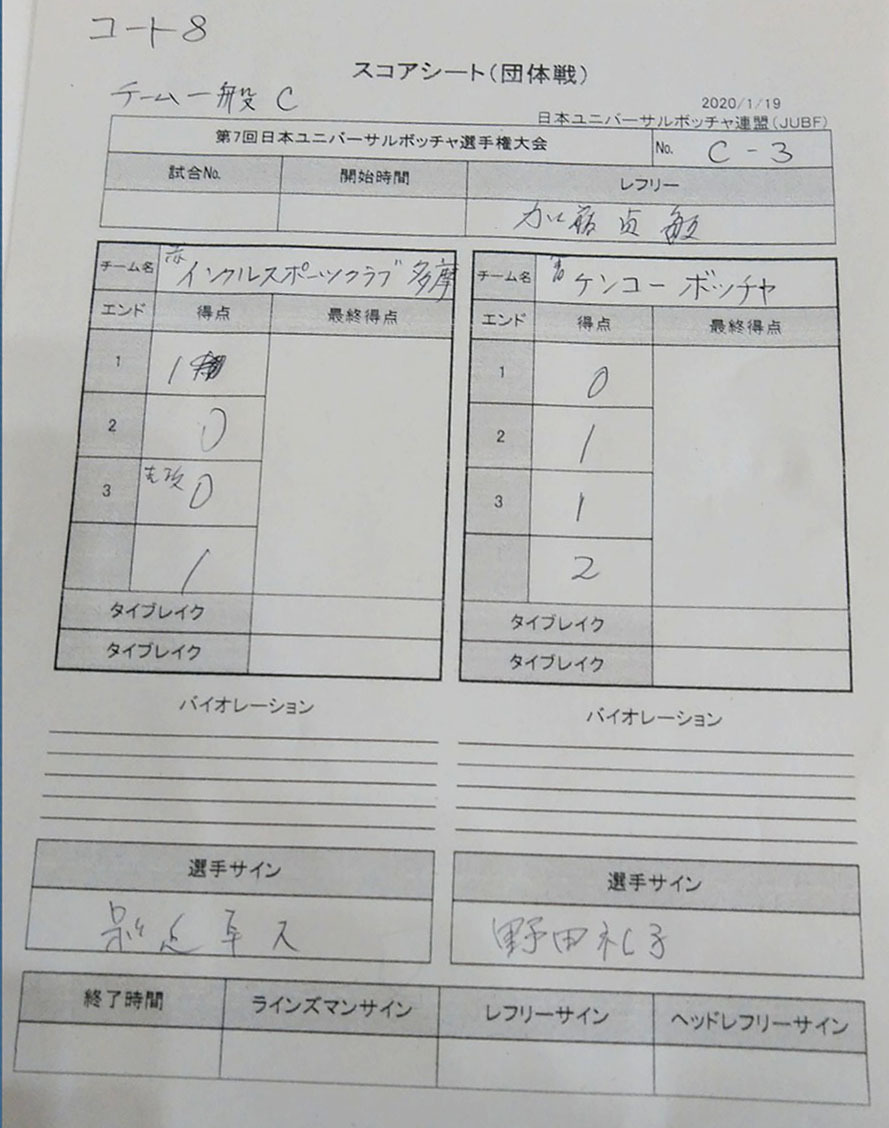 コート8
スコアシート(団体戦)
チーム一般 C
2020/1/19
日本ユニバーサルボッチャ連盟(JUBF)
第7回日本ユニバーサルボッチャ選手権大会 No. C-3
試合No. 開始時間 レフリー
加藤 貞敏
チーム名 赤 インクルスポーツクラブ 多摩
エンド 得点 最終得点
1 1
2 0
3 先攻 0
1
タイブレイク
タイブレイク
チーム名 青 ケンコー ボッチャ
エンド 得点 最終得点
1 0
2 1
3 1
2
タイブレイク
タイブレイク
バイオレーション バイオレーション
選手サイン 選手サイン
野田礼子
終了時間 ラインズマンサイン レフリーサイン ヘッドレフリーサイン